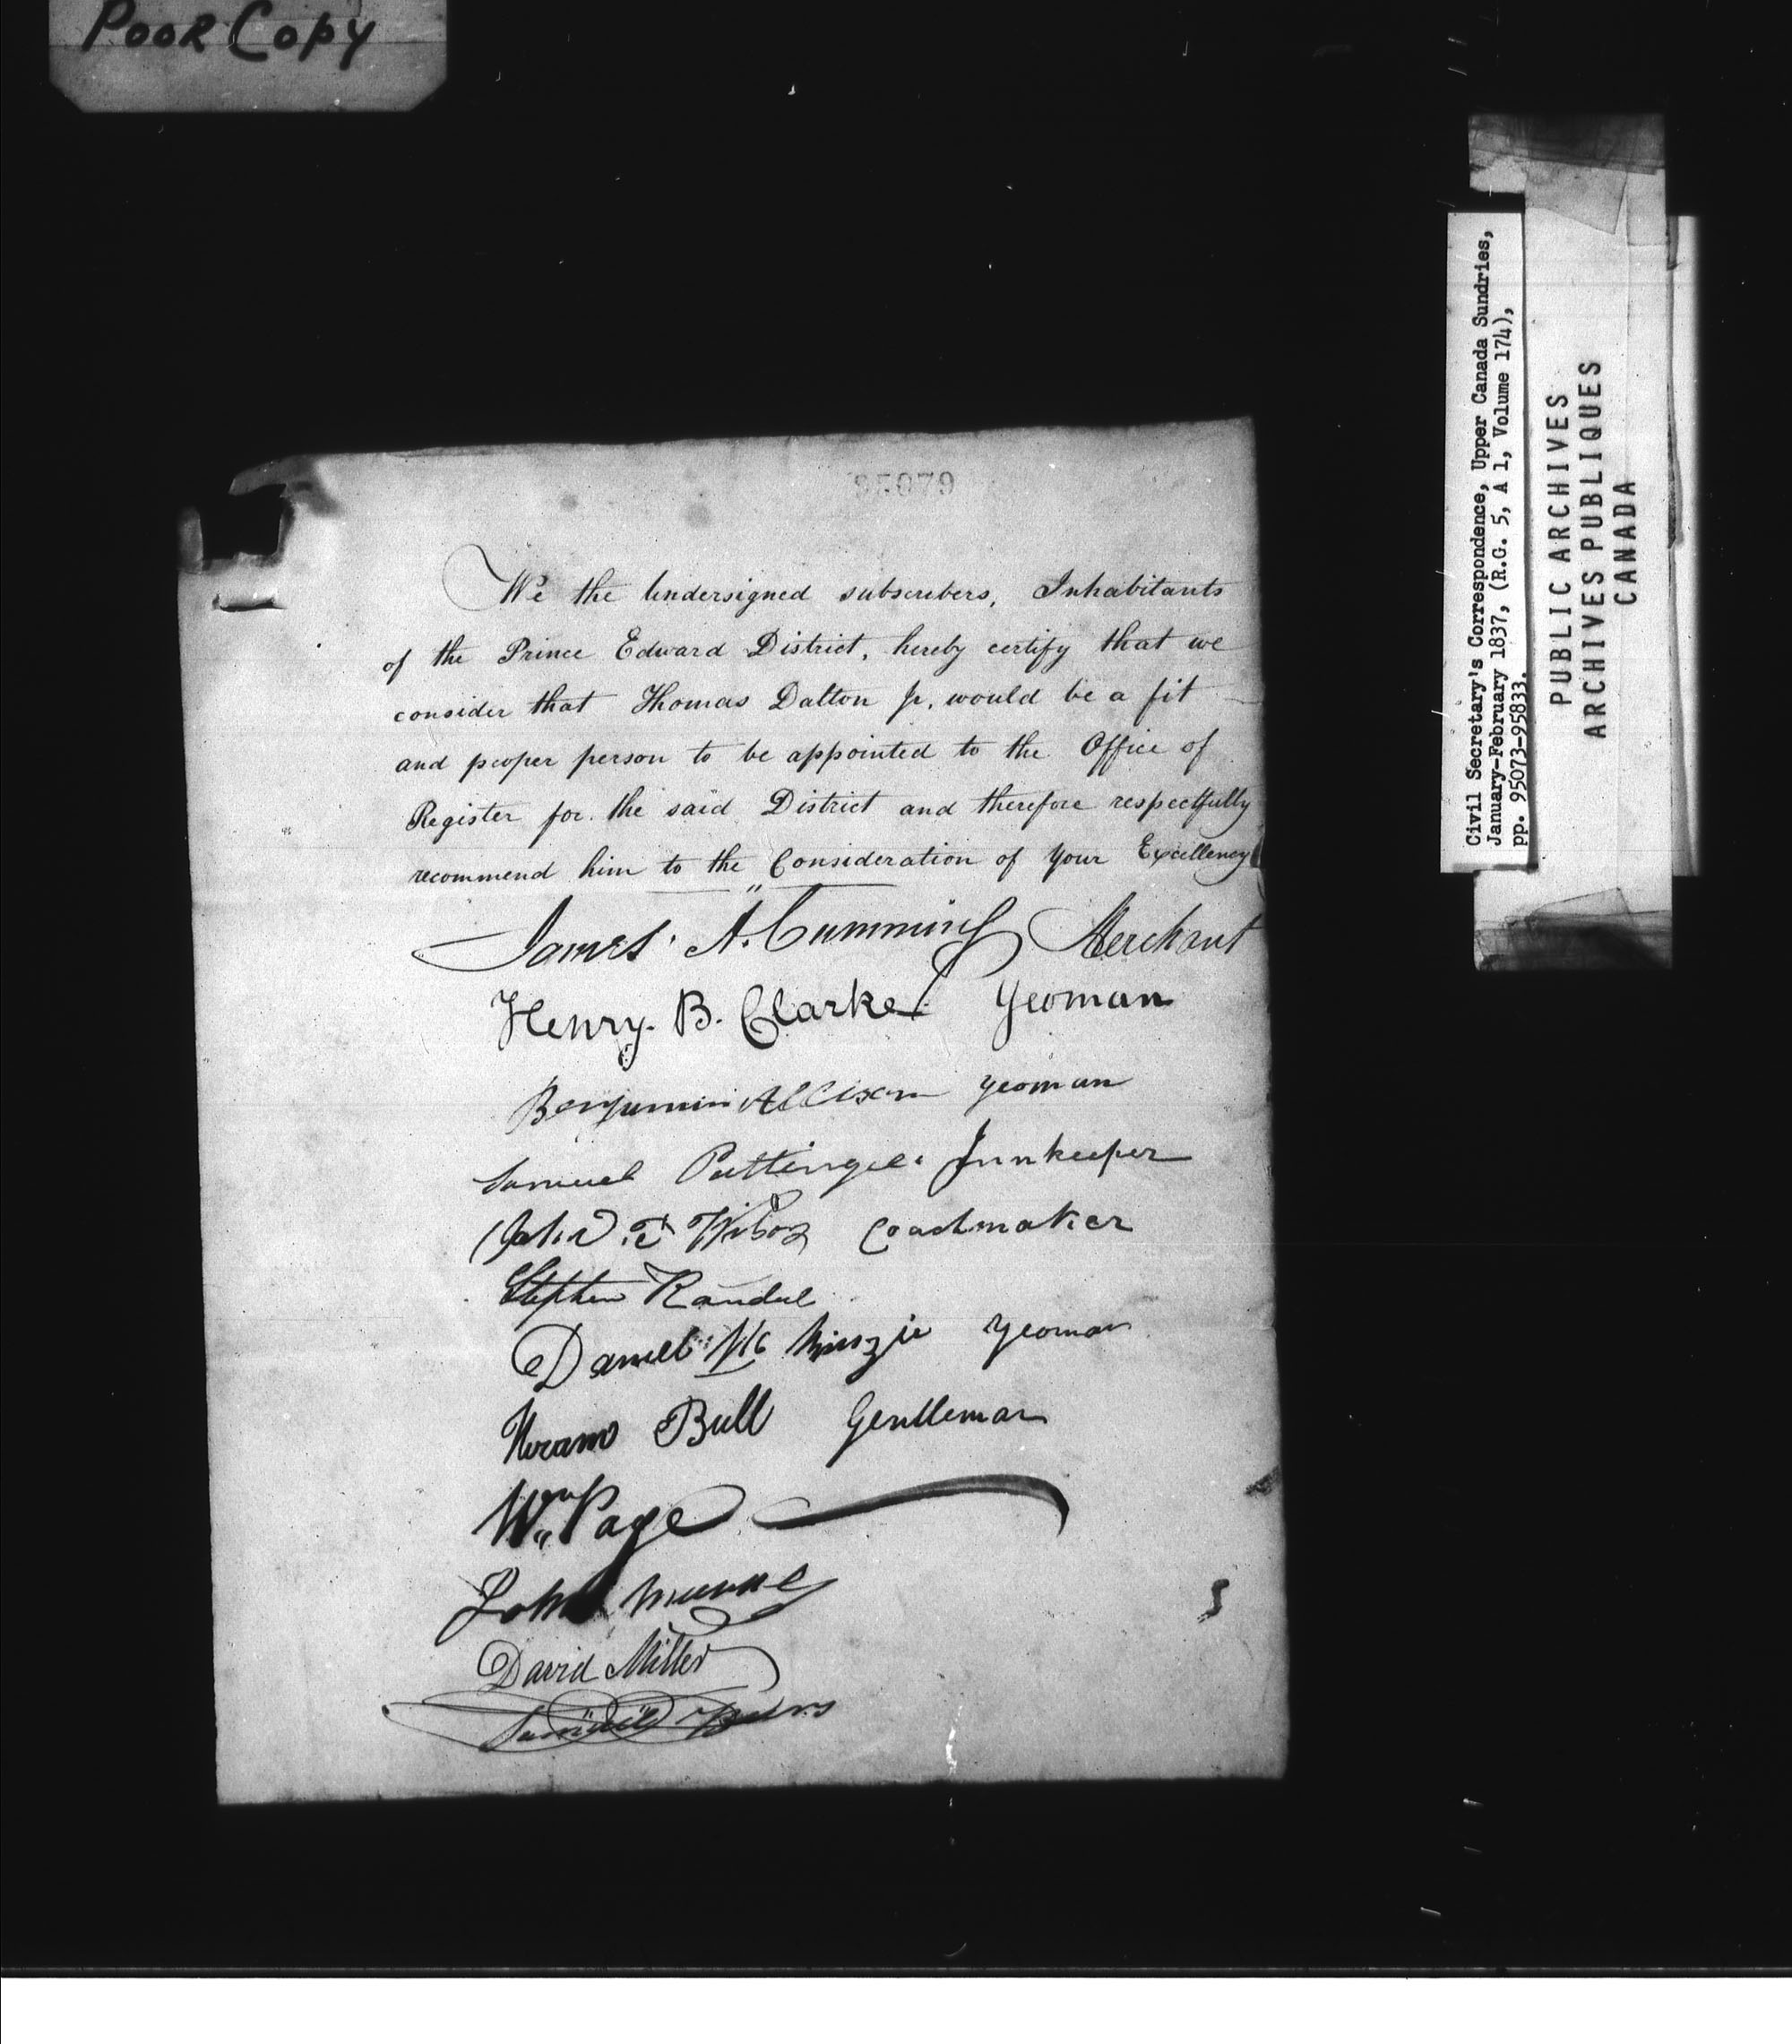 POOR COPY
95079
We the Undersigned subscribers, Inhabitants
of the Prince Edward District, hereby certify that we
consider that Thomas Dalton Jr. would be a fit
and proper person to be appointed to the Office of
Register for the said District and therefore respectfully
recommend him to the Consideration of Your Excellency
James A. Cumming Merchant
Henry B. Clarke Yeoman
Benjamin Allison Yeoman
Samuel Pettingel Innkeeper
John Coachmaker
Stephen Randel
Daniel Mc Kinzie Yeoman
Hiram Bull Gentleman
Wm Page
John
David Miller
Samuel
Civil Secretary's Correspondence, Upper Canada Sundries,
January-February 1837, (R.G. 5, A 1, Volume 174),
pp. 95073-95833.
PUBLIC ARCHIVES
ARCHIVES PUBLIQUES
CANADA